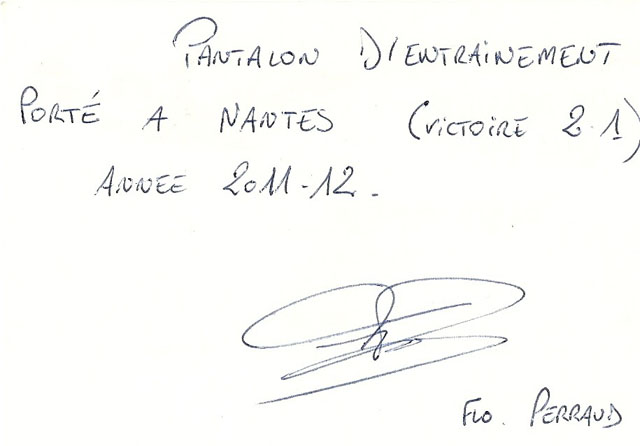 PANTALON D'ENTRAINEMENT
PORTÉ A NANTES (VICTOIRE 2.1)
ANNEE 2011-12.
FLO. PERRAUD